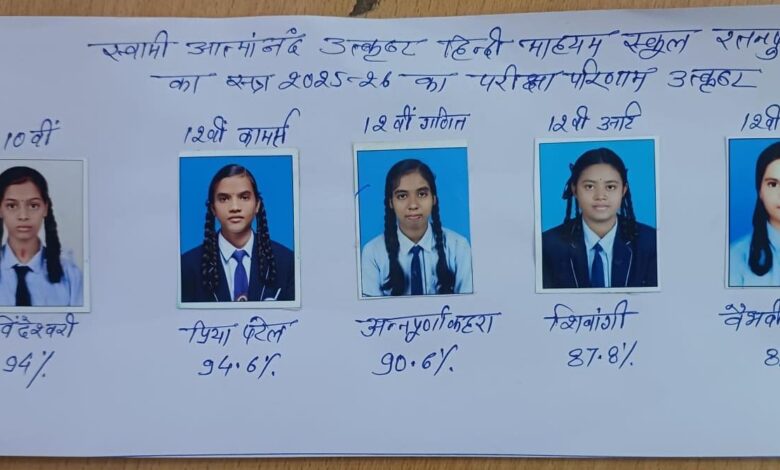 स्वामी आत्मानंद उत्कृष्ट हिन्दी माध्यम स्कूल रतनपु
का सत्र 2025-26 का परीक्षा परिणाम उत्कृष्ट
10वीं
12वीं कामर्स
12वीं गणित
12वी आर्ट
12वी
विंदेश्वरी
प्रिया पटेल
अन्नपूर्णा कहरा
शिवांगी
वैभवी
94%
94.6%
90.6%
87.8%
8